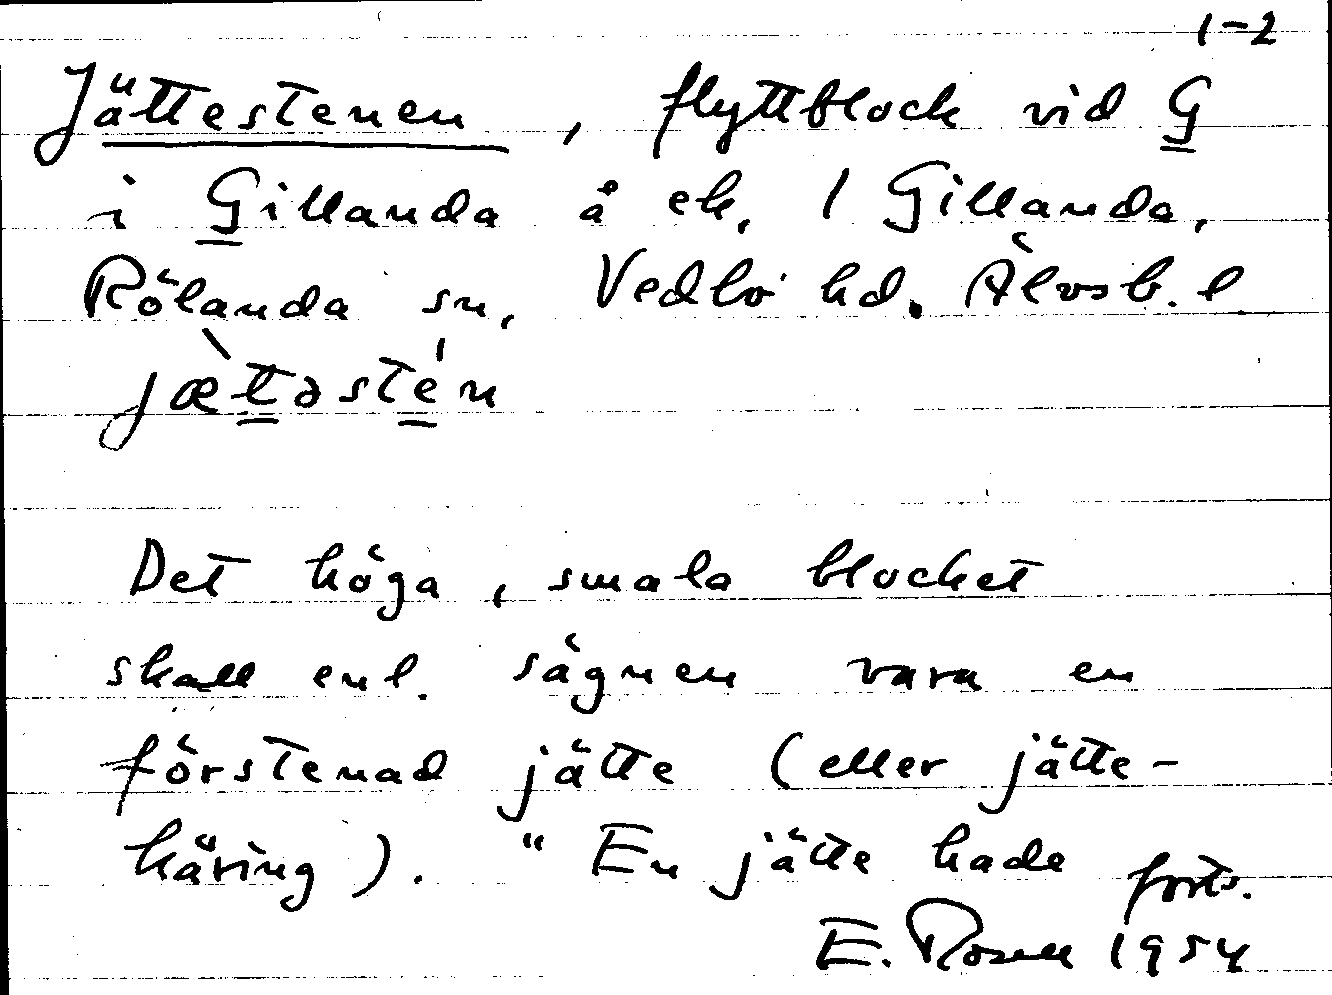 1-2
Jättestenen, flyttblock vid G
i Gillanda å ek. 1 Gillanda,
Rölanda sn, Vedbo hd. Älvsb. l
jæ̀təste̍n
Det höga, smala blocket
skall enl. sägnen vara en
förstenad jätte (eller jätte-
käring). " En jätte hade
forts.
E. Rosell 1954